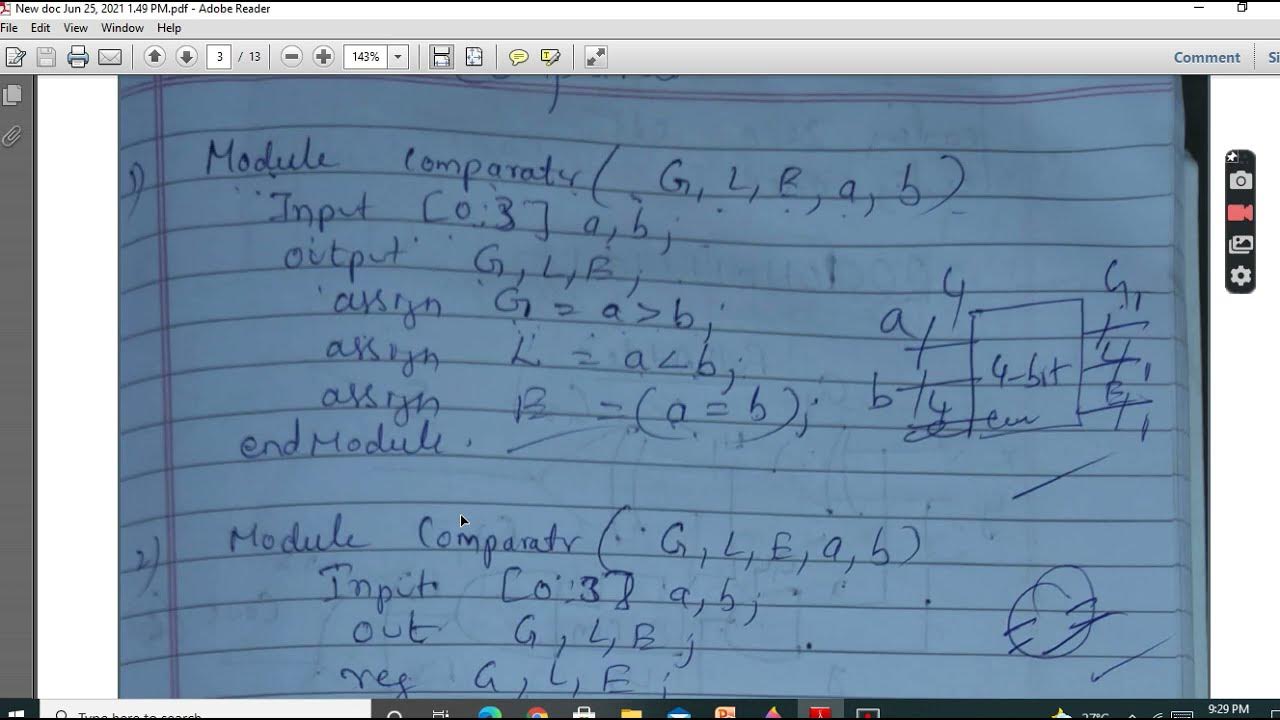 New doc Jun 25, 2021 1.49 PM.pdf - Adobe Reader
File Edit View Window Help
3 / 13 143% Comment
1) Module Comparatr( G, L, E, a, b)
Input [0:3] a, b;
output G, L, E;
assign G = a > b;
assign L = a < b;
assign E = (a = b);
endModule.
a 4 G 1
4-bit 1
b 4 E 1
2) Module Comparatr( G, L, E, a, b)
Input [0:3] a, b;
out G, L, E;
reg G, L, E;
Type here to search
27°C
9:29 PM